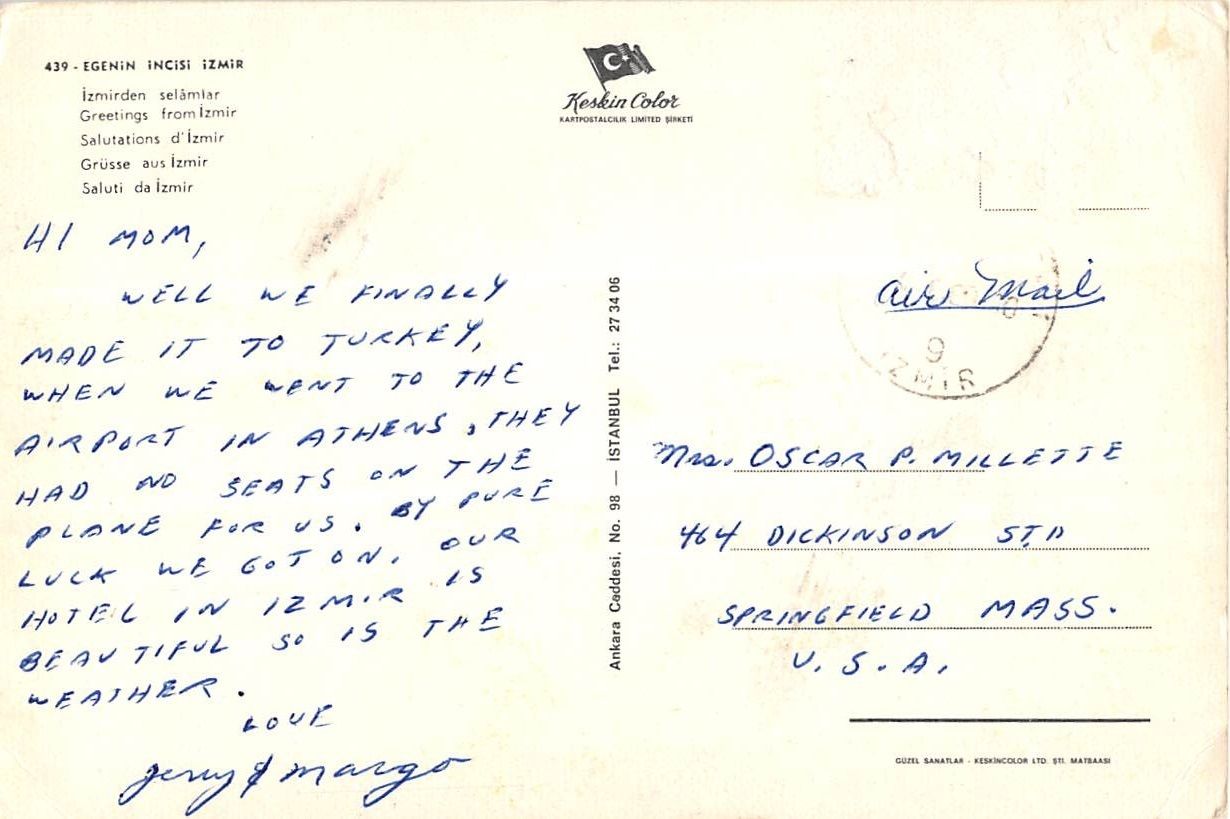 439 - EGENİN İNCİSİ İZMİR
İzmirden selâmlar
Greetings from İzmir
Salutations d'İzmir
Grüsse aus İzmir
Saluti da İzmir
Keskin Color
KARTPOSTALCILIK LIMITED ŞİRKETİ
HI MOM,
WELL WE FINALLY
MADE IT TO TURKEY,
WHEN WE WENT TO THE
AIRPORT IN ATHENS, THEY
HAD NO SEATS ON THE
PLANE FOR US. BY PURE
LUCK WE GOT ON. OUR
HOTEL IN IZMIR IS
BEAUTIFUL SO IS THE
WEATHER.
LOVE
Jerry & Margo
Ankara Caddesi, No. 98 — İSTANBUL Tel.: 27 34 06
Air Mail
9
İZMİR
Mrs. OSCAR P. MILLETTE
464 DICKINSON ST.
SPRINGFIELD MASS.
U.S.A.
GÜZEL SANATLAR - KESKİNCOLOR LTD. ŞTİ. MATBAASI